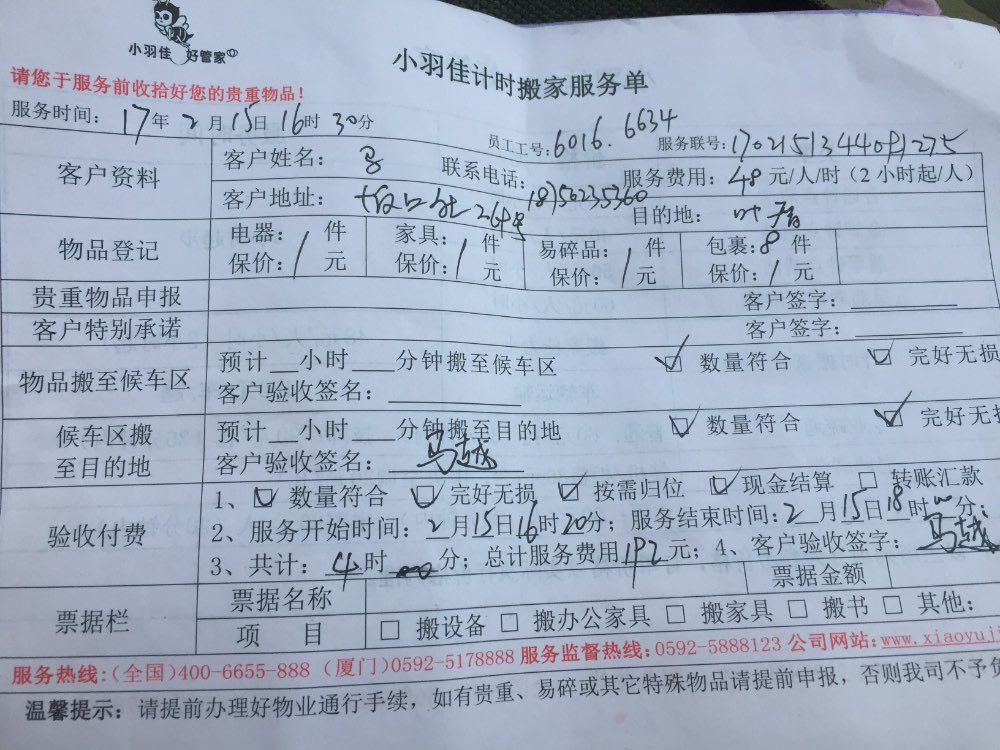 小羽佳 好管家
小羽佳计时搬家服务单
请您于服务前收拾好您的贵重物品！
服务时间：17年2月15日16时30分
员工工号：6016.6634 服务联号：1702151344091275
客户资料
客户姓名：马 联系电话：18750235360 服务费用：48元/人/时（2小时起/人）
客户地址： 264号 目的地：
物品登记
电器：/件 家具：/件 易碎品：/件 包裹：8件
保价：/元 保价：/元 保价：/元 保价：/元
贵重物品申报 客户签字：
客户特别承诺 客户签字：
物品搬至候车区
预计 小时 分钟搬至候车区 ☑ 数量符合 ☑ 完好无损
客户验收签名：
候车区搬至目的地
预计 小时 分钟搬至目的地 ☑ 数量符合 ☑ 完好无损
客户验收签名：马越
验收付费
1、☑ 数量符合 ☑ 完好无损 ☑ 按需归位 ☑ 现金结算 □ 转账汇款
2、服务开始时间：2月15日16时20分；服务结束时间：2月15日18时 分；
3、共计：4时 分；总计服务费用192元；4、客户验收签字：马越
票据栏
票据名称 票据金额
项 目 □ 搬设备 □ 搬办公家具 □ 搬家具 □ 搬书 □ 其他：
服务热线：(全国)400-6655-888 (厦门)0592-5178888 服务监督热线：0592-5888123 公司网站：www.xiaoyuji
温馨提示：请提前办理好物业通行手续，如有贵重、易碎或其它特殊物品请提前申报，否则我司不予